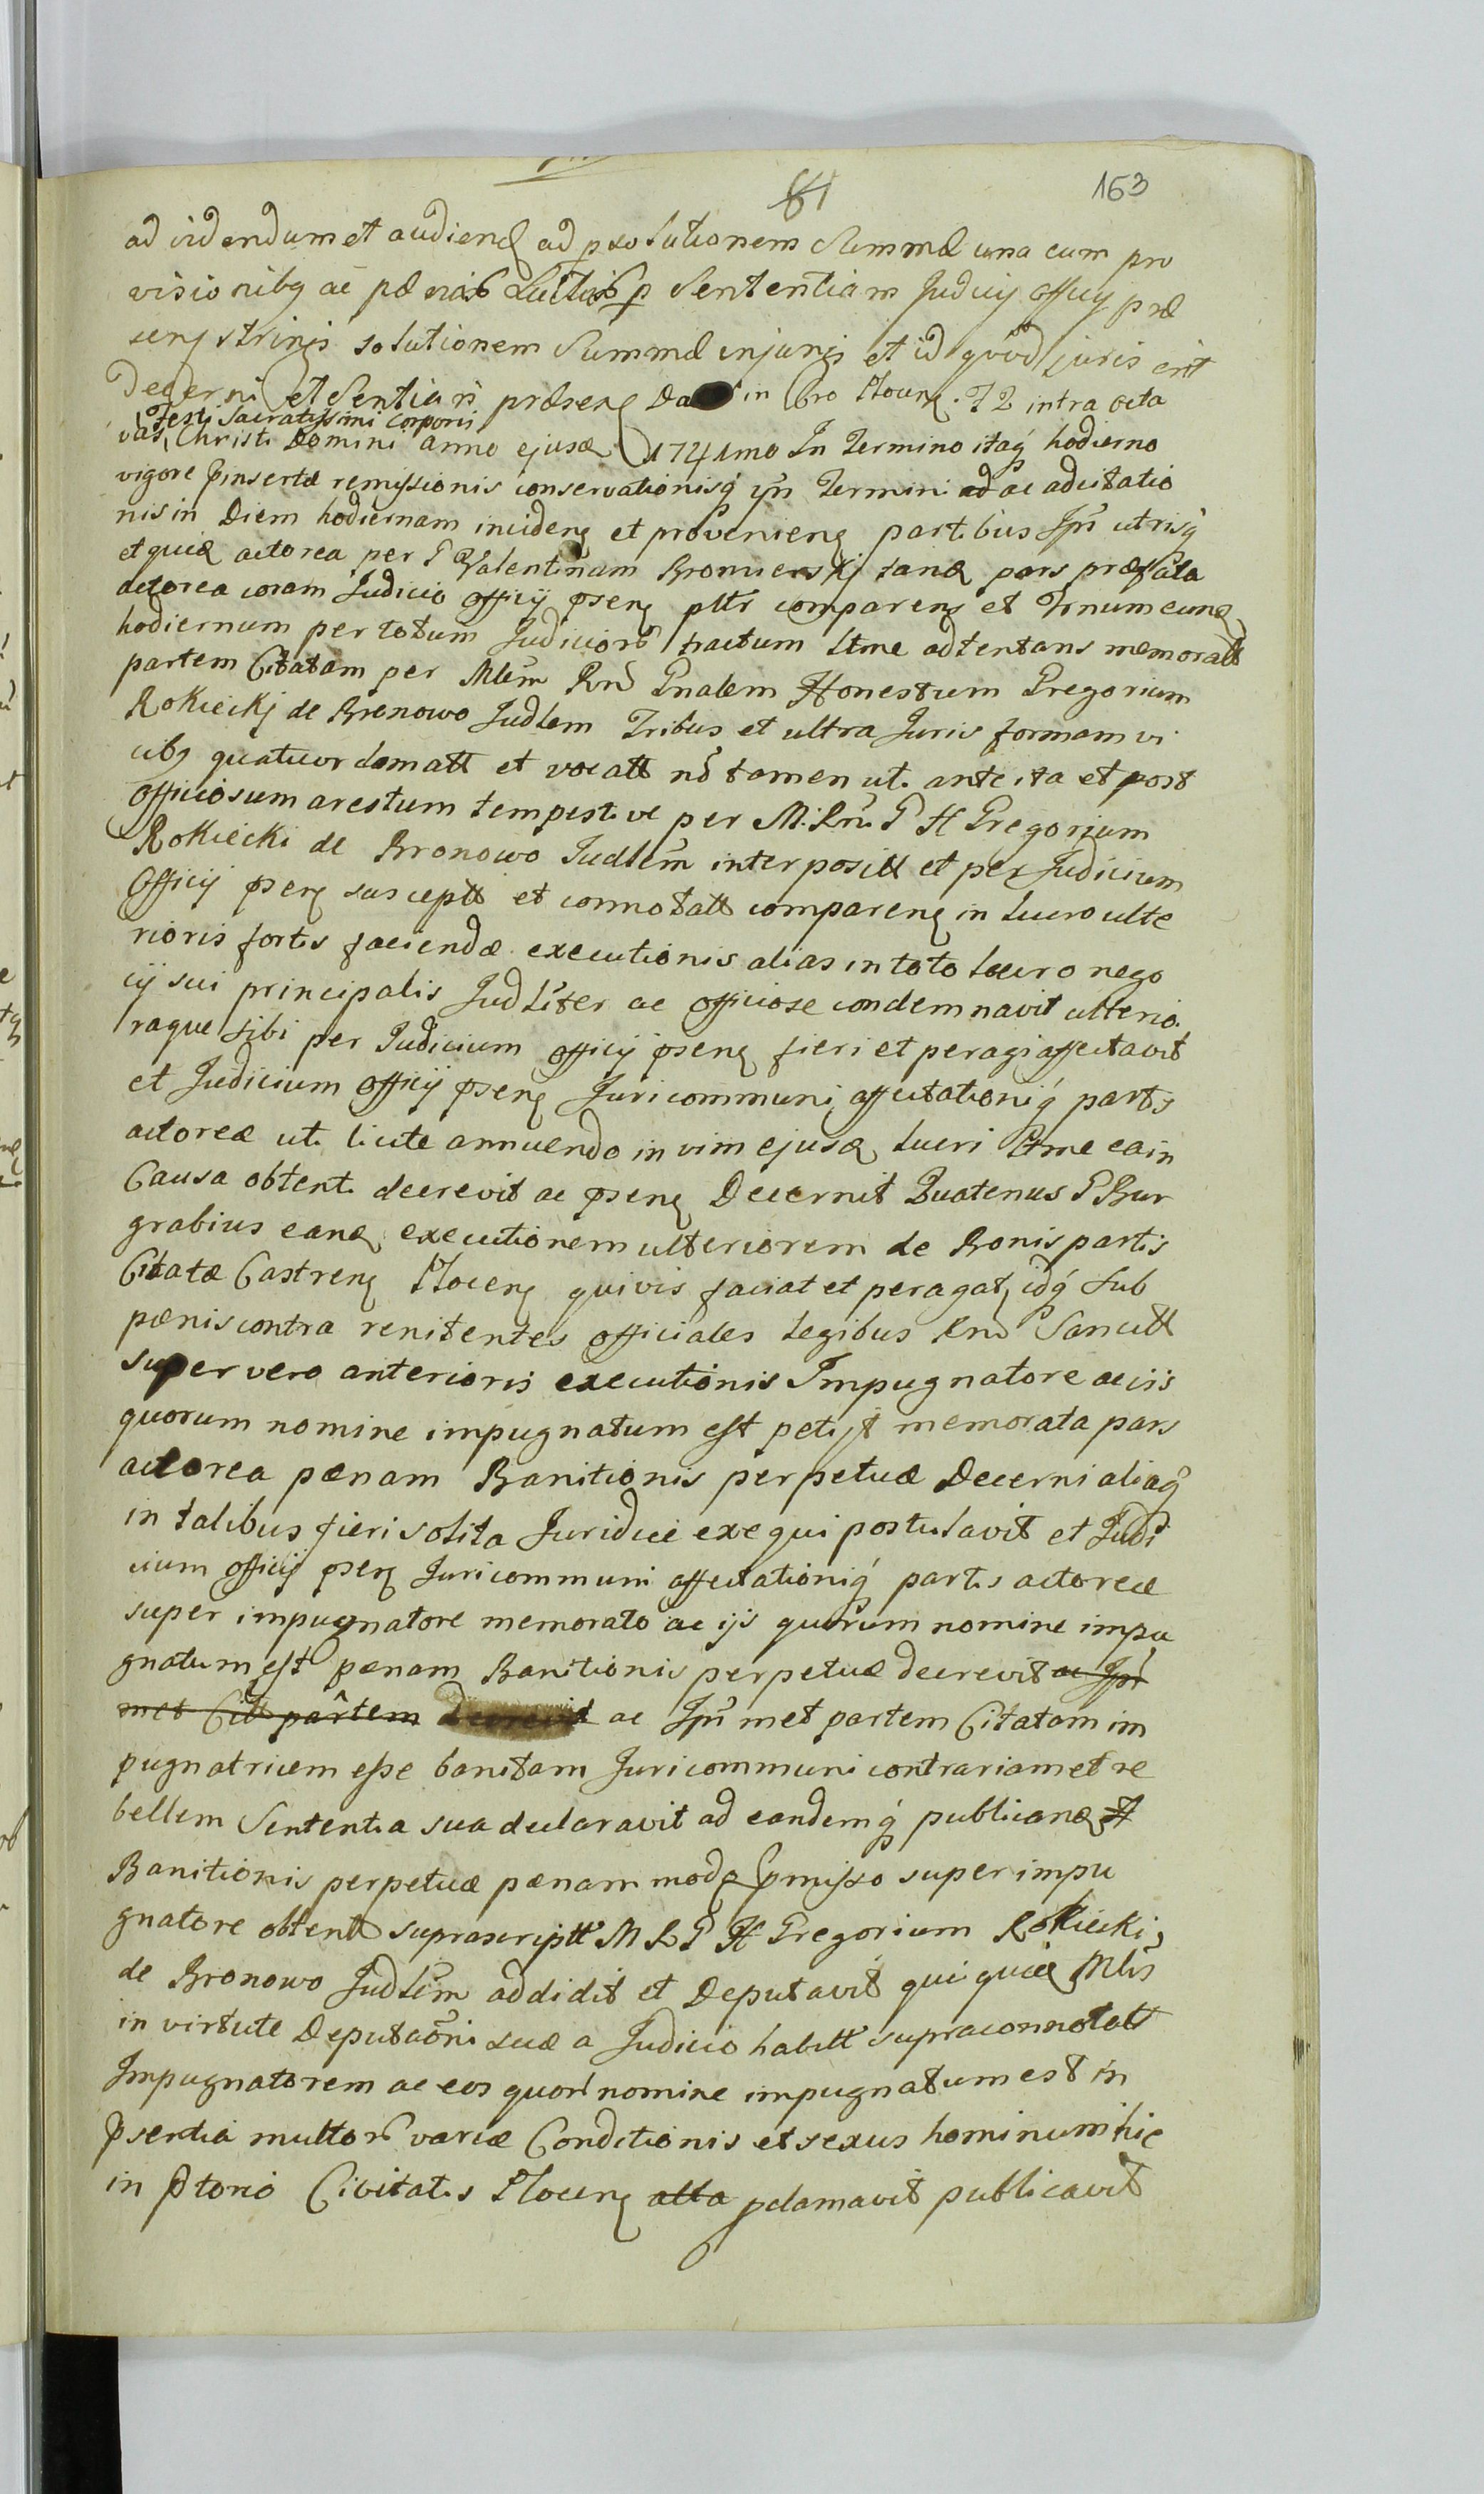 81 163
ad videndum et audiend ad psolutionem Summæ una cum pro
visionibq ac pænis Luitis p Sententiam Judicij officij præ
senq stringi solutionem Summæ injungi et id qvod juris erit
Decerni et Sentiari præsenq Da in Cro Plocenq. F 2 intra octa
Festi Sacratissimi Corporis
vas Christi Domini anno ejusd 1741mo In Termino itaq hodierno
vigore pinsertæ remissionis conservationisq ipn Termini ad ac adcitatio
nis in Diem hodiernam incidenq et provenienq partibus Ipn utrisq
et quid actorea per P Valentinum Bromierskj tand pars præfata
actorea coram Judicio officij psenq pltr comparens et Trnum eund
hodiernum per totum Judiciorũ tractum Ltme adtentans memoratt
partem Citatam per Mlem Rnd Gnalem Honestum Gregorium
Rokieckj de Bronowo Judlem Tribus et ultra Juris formam vi
cibq quatuor clamatt et vocatt nõ tamen uti ante ita et post
officiosum arestum tempestive per M. Rni G H Gregorium
Rokiecki de Bronowo Judlem interposítt et per Judicium
Officij psenq susceptt et connotatt comparenq in lucro ulte
rioris fortis faciendæ executionis alias in toto lucro nego
cij sui principalis Judliter ac officiose condemnavit ulterio
raque sibi per Judicium officij psenq fieri et peragi affectavit
et Judicium officij psenq Juri communi affectationiq partis
actoreæ uti licite annuendo in vim ejusd lucri Ltme ea in
Causa obtenti decrevit ac psenq Decernit Quatenus G Bur
grabius eand executionem ulteriorem de Bonis partis
Citatæ Castrenq Plocenq quivis faciat et peragat, idq sub
pœnis contra renitentes officiales legibus Rni Sancitt
super vero anterioris executionis Impugnatore ac iis
quorum nomine impugnatum est petijt memorata pars
actorea pænam Banitionis perpetuæ Decerni aliaq
in talibus fieri solita Juridice exequi postulavit et Judi
cium officij psenq Juri communi affectationiq partis actoreæ
super impugnatore memorato ac ijs quorum nomine impu
gnatum est pænam Banitionis perpetuæ decrevit ac Ipn
met Citt partem decrevit ac Ipn met partem Citatam im
pugnatricem esse banitam Juri communi contrariam et re
bellem Sententia sua declaravit ad eandemq publicand
Banitionis perpetuæ pænam modo pmisso super impu
gnatore obtentt suprascriptt M R G H Gregorium Rokiecki
de Bronowo Judlem addidit et Deputavit qui quid Mlis
in virtute Deputaõni suæ a Judicio habitt supraconnotatt
Impugnatorem ac eos quorũ nomine impugnatum est in
psentia multorũ variæ Conditionis et sexus hominum hic
in ptorio Civitatis Plocenq alta pclamavit publicavit